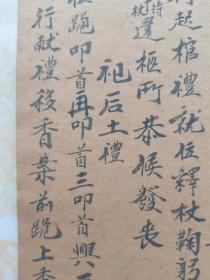 起棺禮就位釋杖鞠躬
持杖還柩所恭候發丧
祀后土禮
跪叩首再叩首三叩首興
行献禮移香案前跪上香